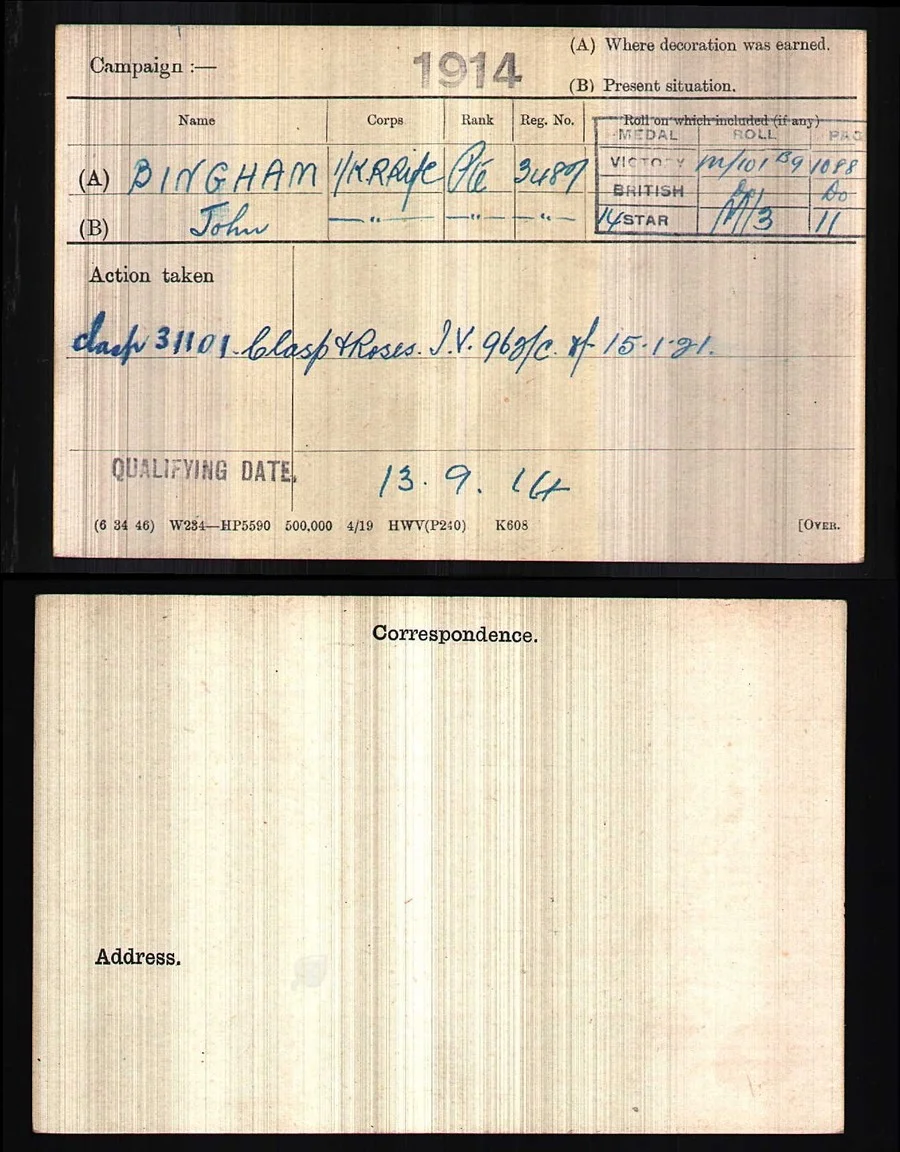 Campaign :—
1914
(A) Where decoration was earned.
(B) Present situation.
Name Corps Rank Reg. No. Roll on which included (if any)
MEDAL ROLL PAG
(A) BINGHAM 1/K.R.Rif C Pte 3487
VICTORY M/101 B9 1088
BRITISH Do Do
(B) John —"— —"— —"—
14 STAR M/3 11
Action taken
Clasp 31101. Clasp & Roses. I.V. 963/C. of 15.1.21.
QUALIFYING DATE. 13. 9. 14
(6 34 46) W234—HP5590 500,000 4/19 HWV(P240) K608 [OVER.
Correspondence.
Address.